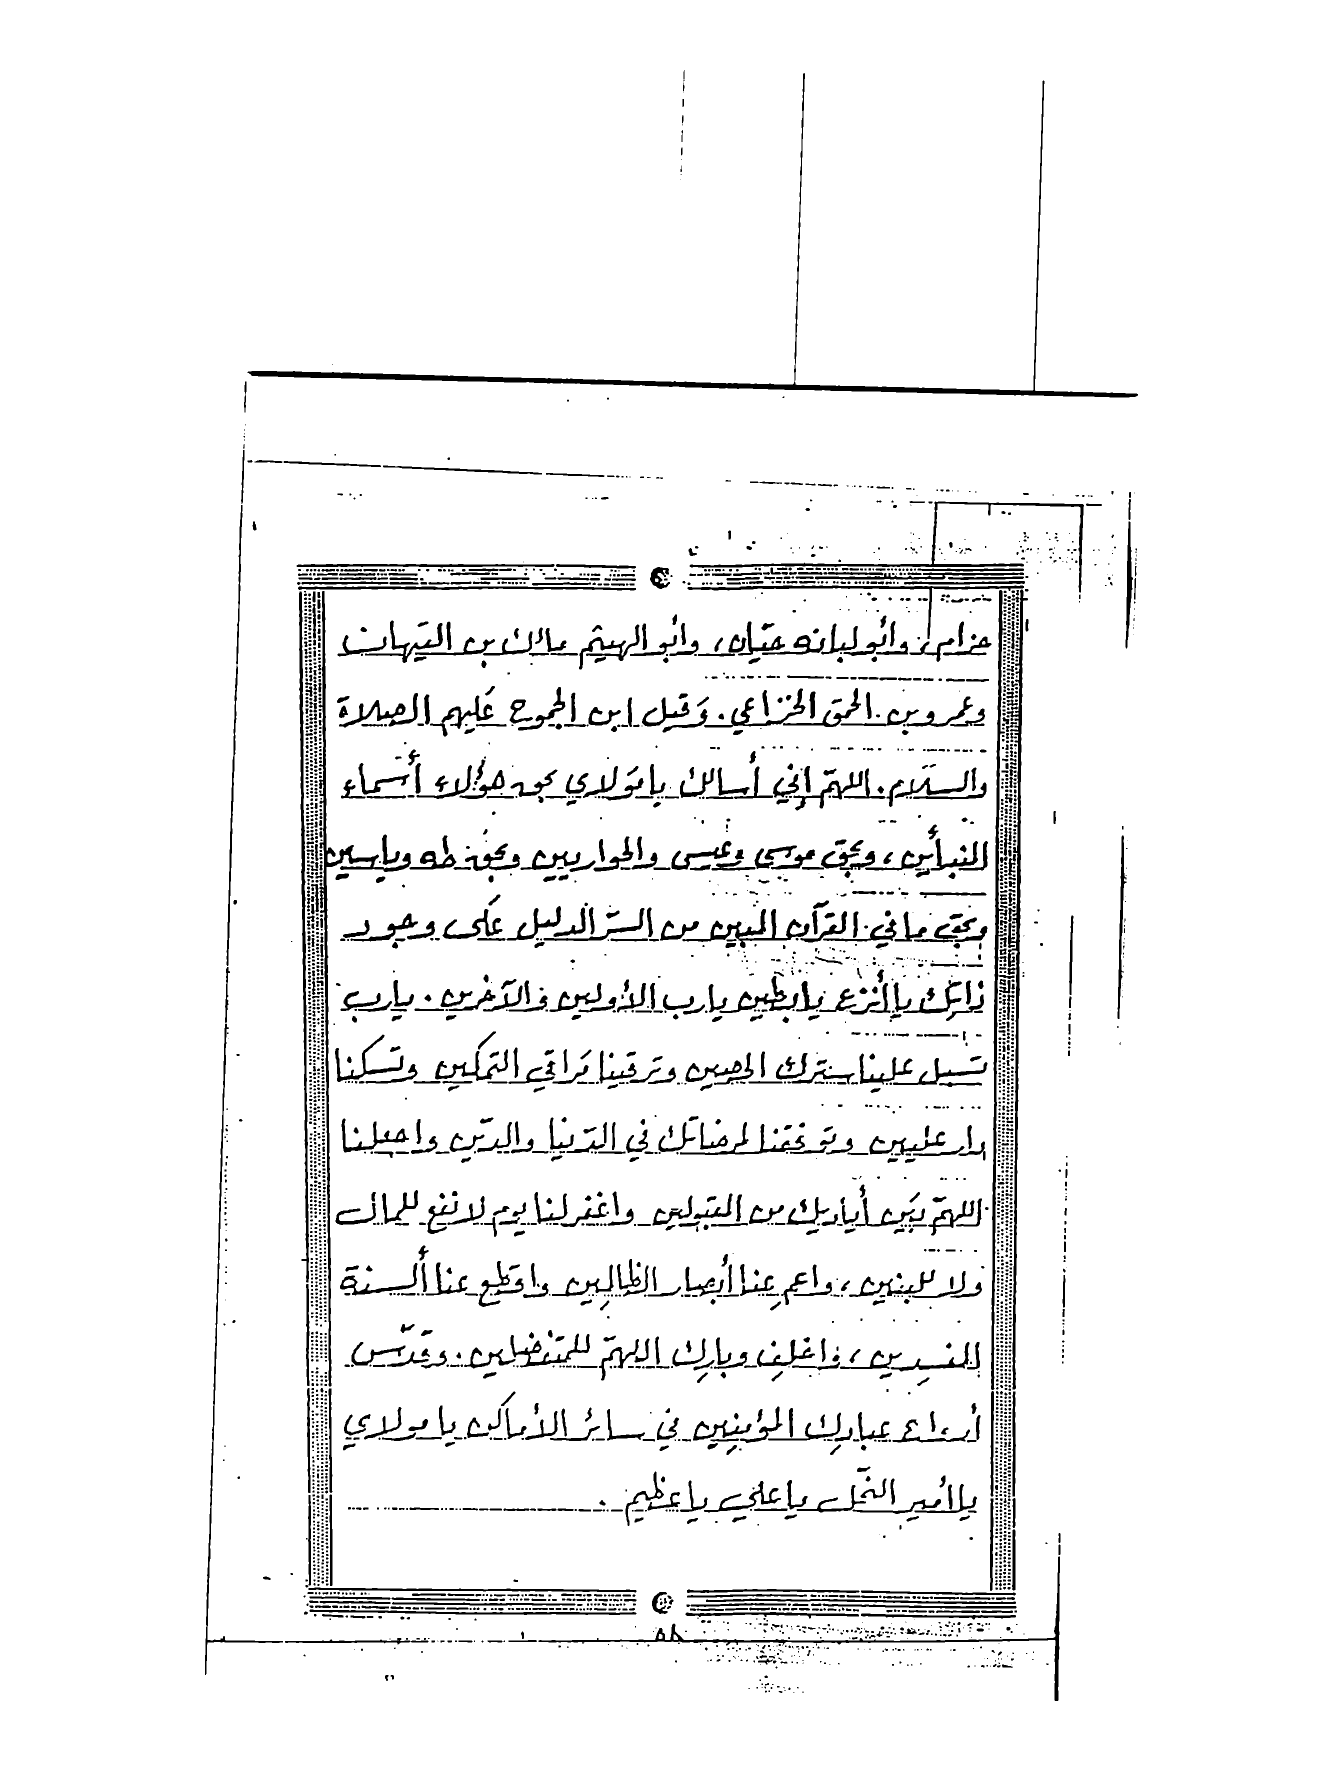 حزام، وأبو لبانه حيّان، وأبو الهيثم مالك بن التيهان
وعمرو بن الحمق الخزاعي. وَقيل ابن الجموح عَليهم الصلاة
والسلام. اللهمّ إني أسالك يا مَولاي بحق هؤلاء أسماء
النبأين، وبحقّ موسى وعيسى والحواريين وبحق طه وياسين
وبحقّ ما في القرآن المبين من السرّ الدليل عَلى وجود
ذاتِك يا أنزع يا بطين يا رب الأولين والآخرين. يا رب
تسبل علينا سترك الحصين وترقينا مَراقي التمكين وتسكنا
دار عليين وتوفقنا لمرضاتك في الدّنيا والدّين واجعلنا
اللهمّ بَين أياديك من المقبولين واغفر لنا يوم لا نفع للمال
ولا للبنين، واعمِ عنا أبصار الظالِمين واقطع عنا ألسنة
المفسِدين، واخلف وبارِك اللهمّ للمتفضلين. وقدّس
أرواح عبادِك المؤمنِين في سائر الأماكن يا مولاي
يا أمير النحّل يا علي يا عظيم.
٥٨